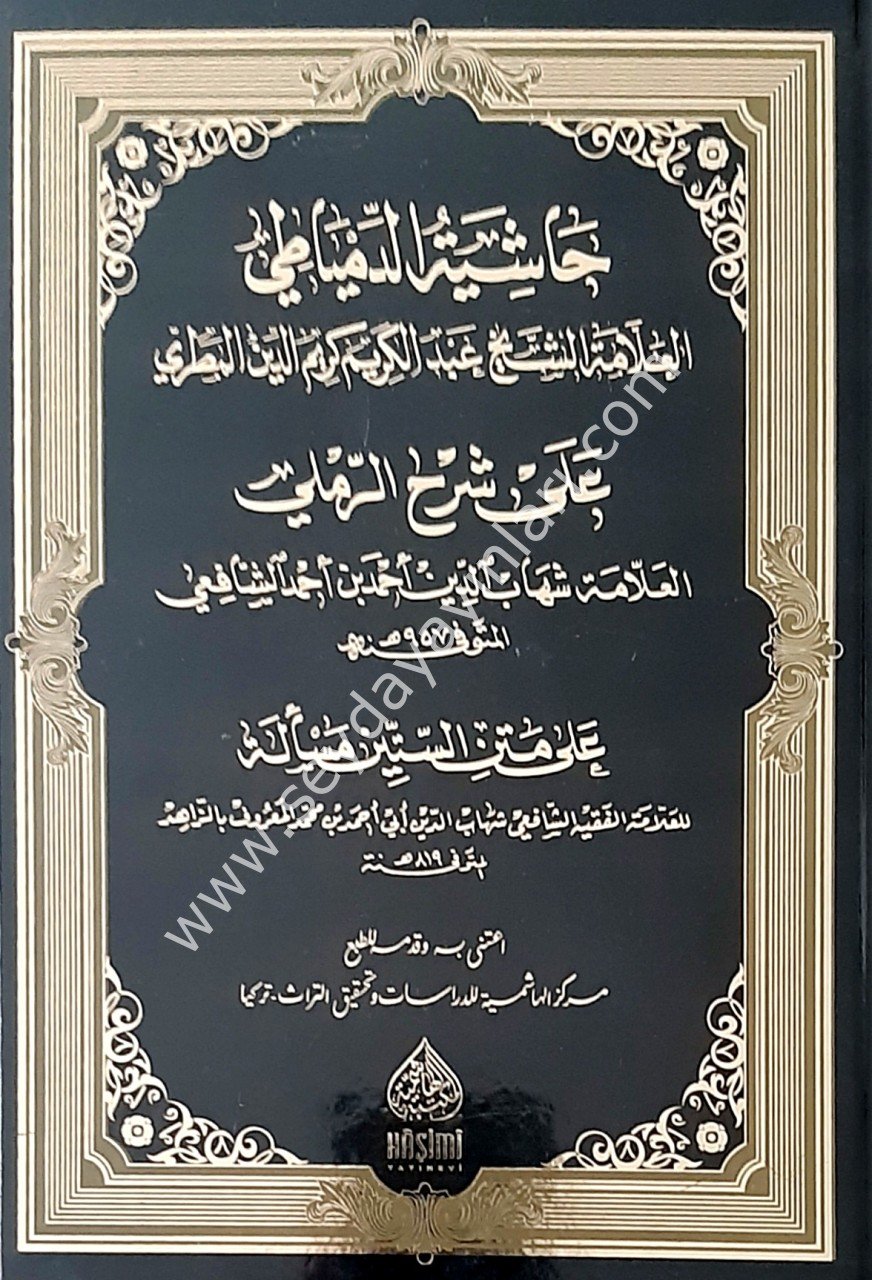 حَاشِيَةُ الدِّمْيَاطِي
العلامة الشيخ عبد الكريم كريم الدين المطري
عَلَى شَرْحِ الرَّمْلي
العلّامة شهاب الدين أحمد بن أحمد الشافعي
المتوفى سنة ٩٥٧هـ
عَلَى مَتْنِ السِّتِّينَ مَسْأَلَة
للعلامة الفقيه الشافعي شهاب الدين أبي أحمد بن محمد المعروف بالزاهد
المتوفى سنة ٨١٩هـ
اعتنى به وقدمه للطبع
مركز الهاشمية للدراسات وتحقيق التراث - تركيا
المكتبة الهاشمية
HAŞİMİ
YAYINEVİ
www.seydayayinlari.com